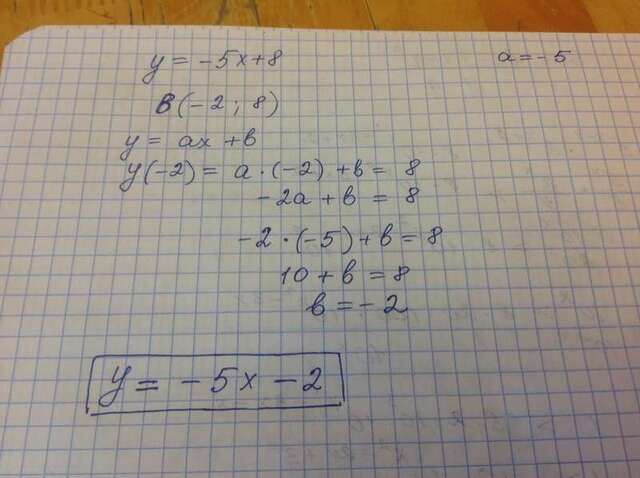 y = -5x+8
a = -5
B(-2; 8)
y = ax + b
y(-2) = a·(-2) + b = 8
-2a + b = 8
-2·(-5) + b = 8
10 + b = 8
b = -2
y = -5x - 2